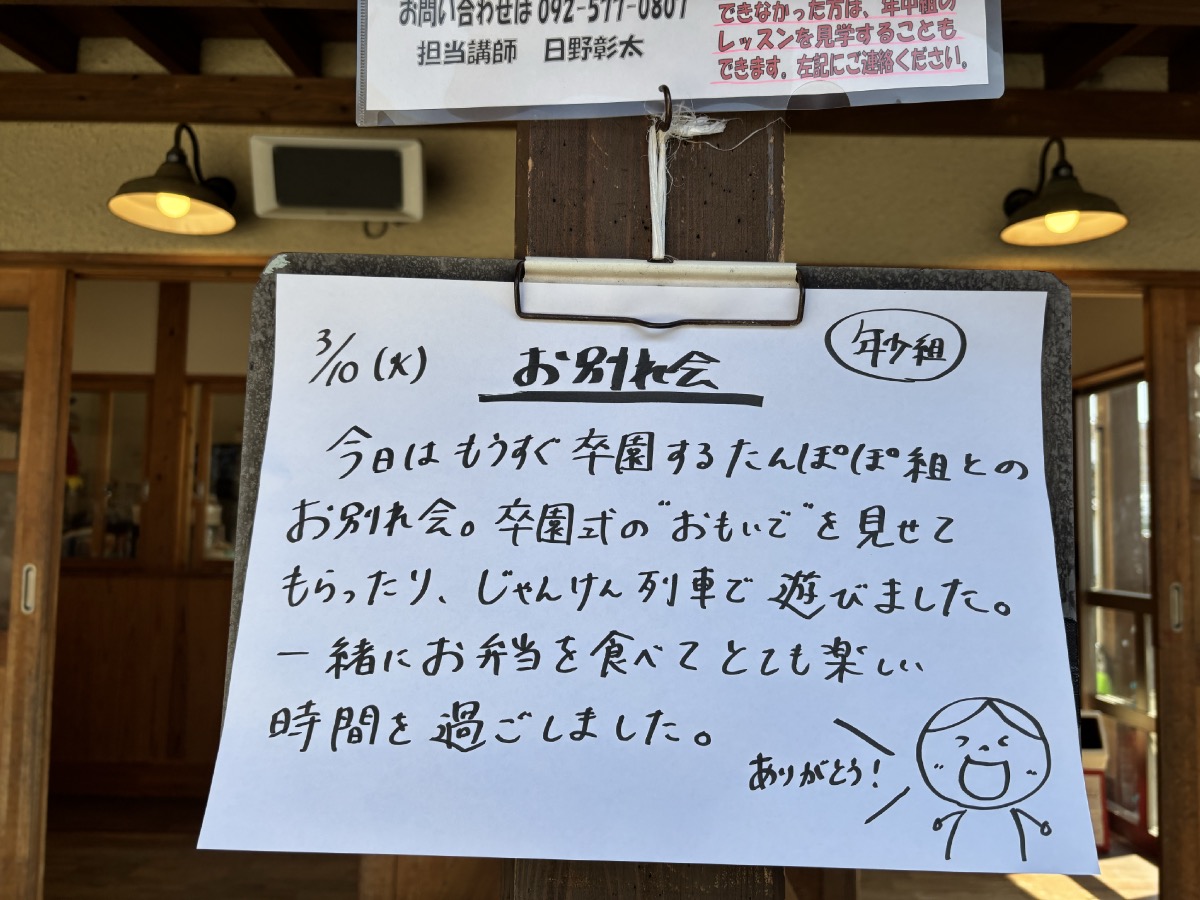 お問い合わせは 092-577-0807
担当講師 日野彰太
できなかった方は、年中組の
レッスンを見学することも
できます。左記にご連絡ください。
3/10(火) お別れ会 年少組
今日はもうすぐ卒園するたんぽぽ組との
お別れ会。卒園式の"おもいで"を見せて
もらったり、じゃんけん列車で遊びました。
一緒にお弁当を食べてとても楽しい
時間を過ごしました。
ありがとう!